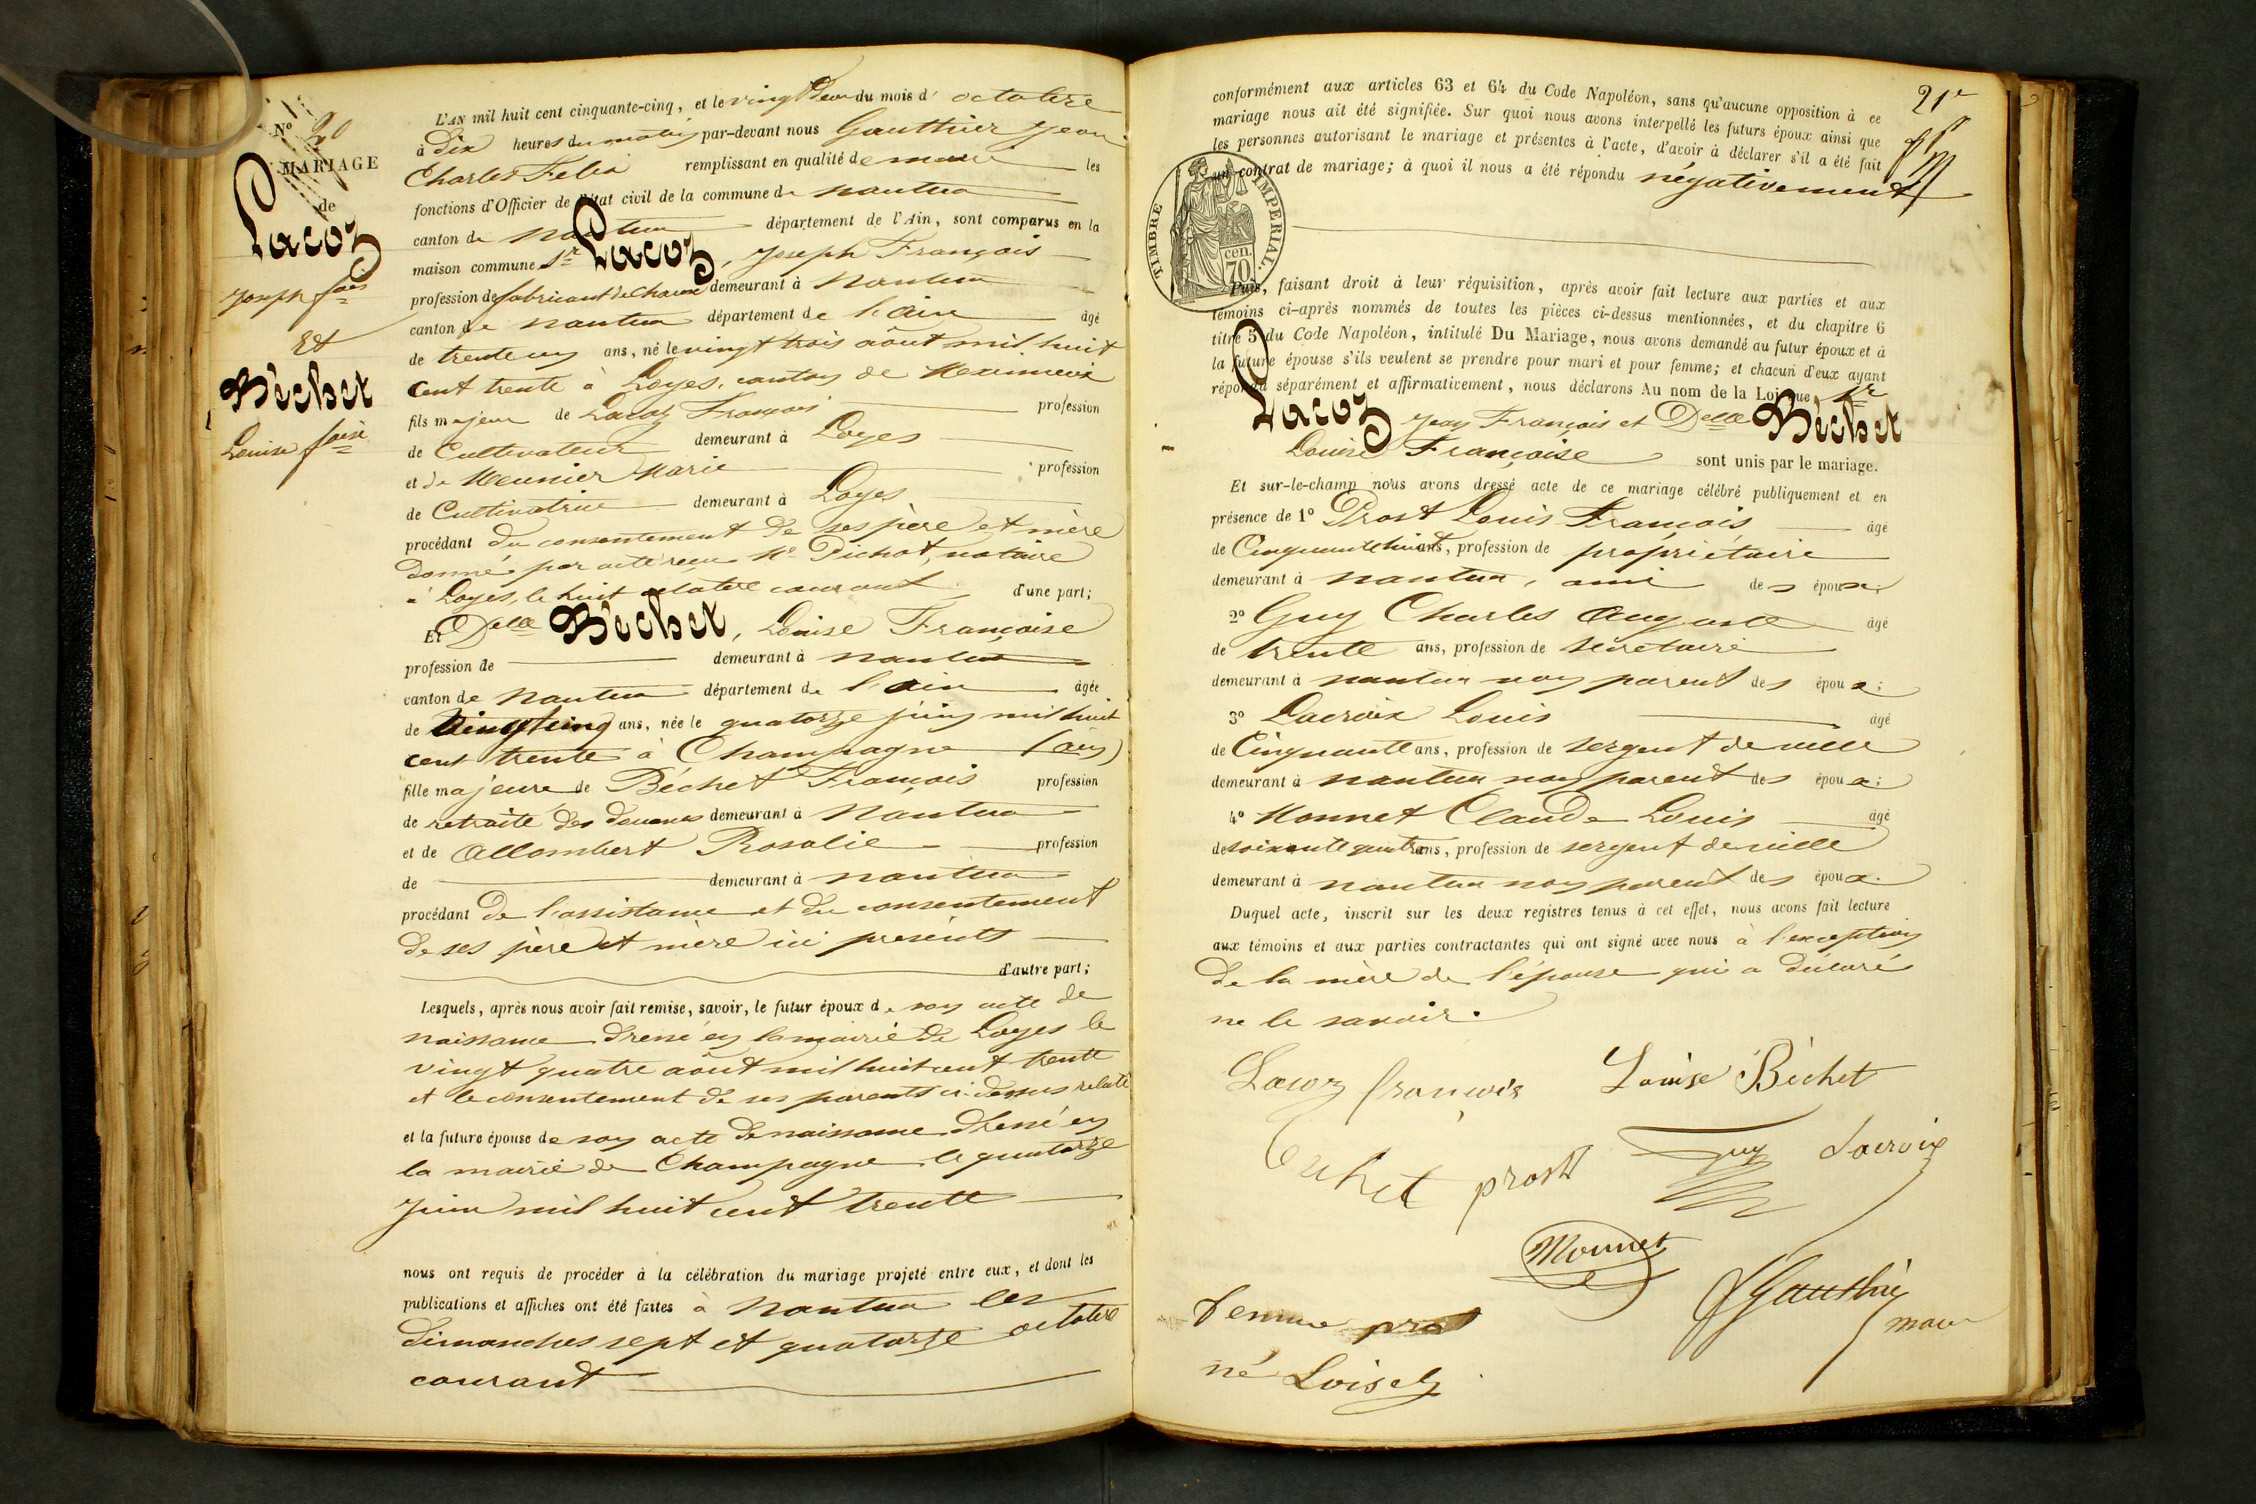 N° 20
MARIAGE
de
Lacoz
Joseph fçois
Et
Béchet
Louise fçoise
L'AN mil huit cent cinquante-cinq, et le vingt deux du mois d'octobre
à dix heures du matin par-devant nous Gauthier Jean
Charles Felix remplissant en qualité de maire les
fonctions d'Officier de l'état civil de la commune de nantua
canton de nantua département de l'Ain, sont comparus en la
maison commune Sr Lacoz, Joseph François
profession de fabricant de chaux demeurant à Nantua
canton de nantua département de l'ain âgé
de trente cinq ans, né le vingt trois août mil huit
cent trente à Loyes, canton de Meximieux
fils majeur de Lacoz François profession
de Cultivateur demeurant à Loyes
et de Meunier Marie profession
de Cultivatrice demeurant à Loyes
procédant du consentement de ses père et mère
donné par acte reçu Me Pichot, notaire
à Loyes, le huit octobre courant d'une part;
Et Delle Béchet, Louise Françoise
profession de demeurant à nantua
canton de nantua département de l'ain âgée
de vingt cinq ans, née le quatorze juin mil huit
cent trente à Champagne (ain)
fille majeure de Béchet François profession
de retraité des douanes demeurant à Nantua
et de Allombert Rosalie profession
de demeurant à nantua
procédant de l'assistance et du consentement
de ses père et mère ici présents
d'autre part;
Lesquels, après nous avoir fait remise, savoir, le futur époux de son acte de
naissance dressé en la mairie de Loyes le
vingt quatre août mil huit cent trente
et le consentement de ses parents ci-dessus relaté
et la future épouse de son acte de naissance dressé en
la mairie de Champagne le quatorze
juin mil huit cent trente
nous ont requis de procéder à la célébration du mariage projeté entre eux, et dont les
publications et affiches ont été faites à Nantua les
dimanches sept et quatorze octobre
courant
21e
conformément aux articles 63 et 64 du Code Napoléon, sans qu'aucune opposition à ce
mariage nous ait été signifiée. Sur quoi nous avons interpellé les futurs époux ainsi que
les personnes autorisant le mariage et présentes à l'acte, d'avoir à déclarer s'il a été fait
un contrat de mariage; à quoi il nous a été répondu négativement
TIMBRE IMPERIAL.
cen.
70
Puis, faisant droit à leur réquisition, après avoir fait lecture aux parties et aux
témoins ci-après nommés de toutes les pièces ci-dessus mentionnées, et du chapitre 6
titre 5 du Code Napoléon, intitulé Du Mariage, nous avons demandé au futur époux et à
la future épouse s'ils veulent se prendre pour mari et pour femme; et chacun d'eux ayant
répondu séparément et affirmativement, nous déclarons Au nom de la Loi que Sr
Lacoz Jean François et Delle Béchet
Louise Françoise sont unis par le mariage.
Et sur-le-champ nous avons dressé acte de ce mariage célébré publiquement et en
présence de 1° Prost Louis François âgé
de Cinquante huit ans, profession de propriétaire
demeurant à nantua, ami des époux.
2° Guy Charles Auguste âgé
de trente ans, profession de secrétaire
demeurant à nantua non parent des époux;
3° Lacroix Louis âgé
de Cinquante ans, profession de sergent de ville
demeurant à nantua non parent des époux;
4° Monnet Claude Louis âgé
de soixante quatre ans, profession de sergent de ville
demeurant à nantua non parent des époux.
Duquel acte, inscrit sur les deux registres tenus à cet effet, nous avons fait lecture
aux témoins et aux parties contractantes qui ont signé avec nous à l'exception
de la mère de l'épouse qui a déclaré
ne le savoir.
Lacoz francois Louise Béchet
Bechet prost Guy Lacroix
Monnet
Gauthier
maire
femme prost
né Loisel